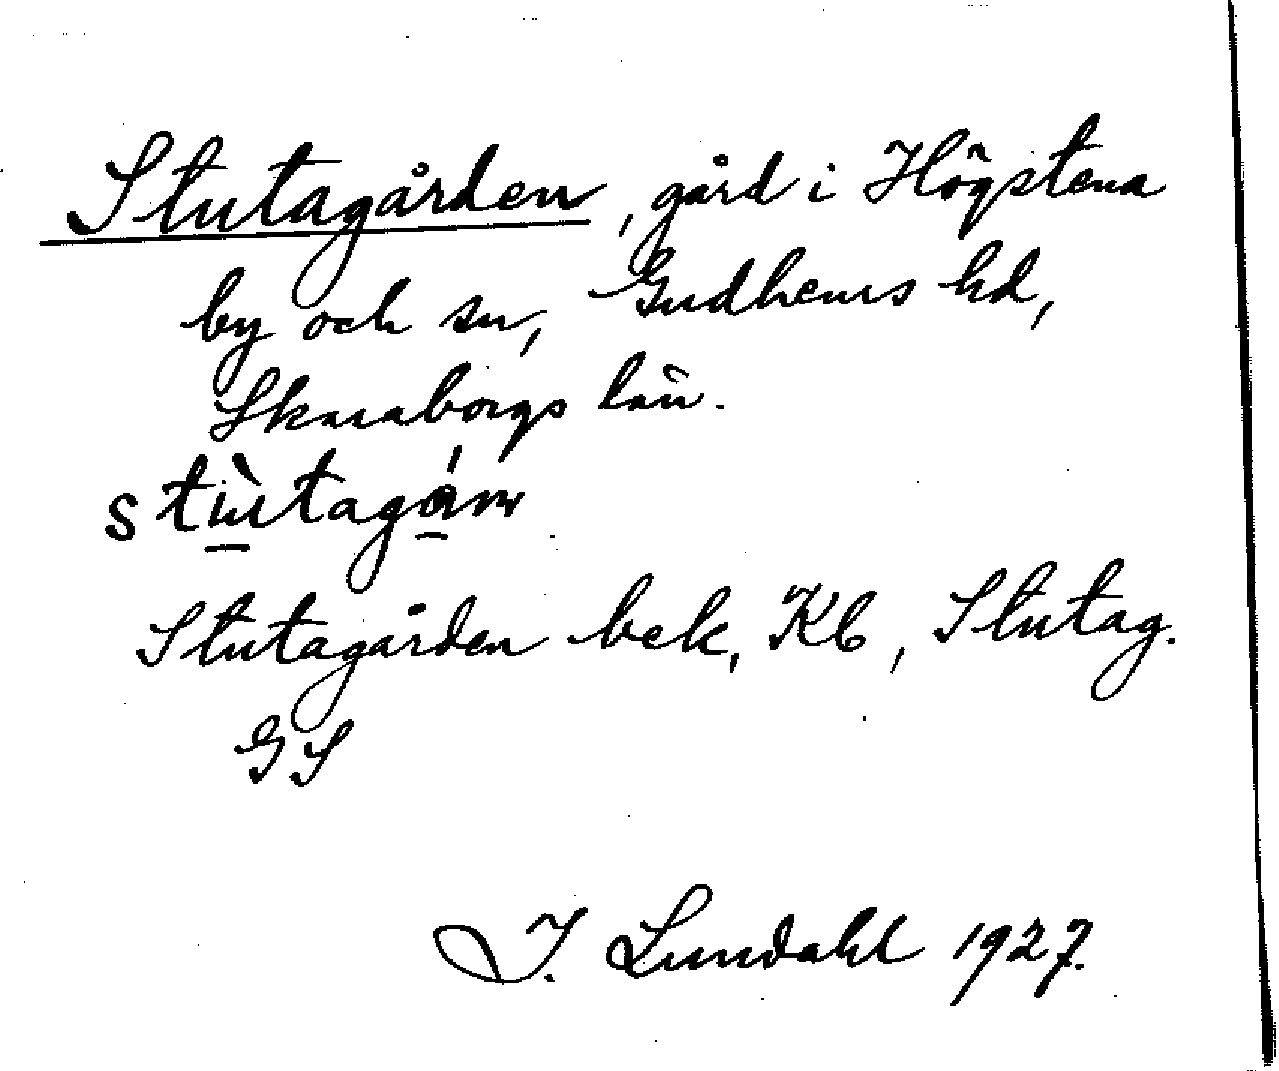 Stutagården, gård i Högstena
by och sn, Gudhems hd,
Skaraborgs län.
Stutagården bek, Kb, Stutag.
GS
I. Lundahl 1927.